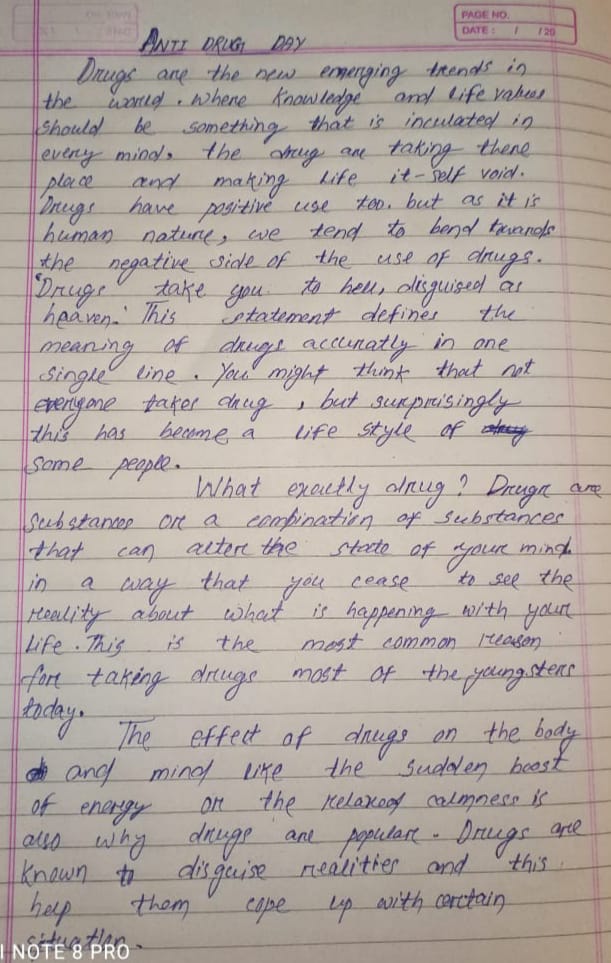 PAGE NO.
DATE: / /20
ANTI DRUG DAY
Drugs are the new emerging trends in
the world. Where knowledge and life values
should be something that is inculated in
every mind, the drug are taking there
place and making life it-self void.
Drugs have positive use too. but as it is
human nature, we tend to bend towards
the negative side of the use of drugs.
'Drugs take you to hell, disguised as
heaven.' This statement defines the
meaning of drugs accuratly in one
single line. You might think that not
everyone takes drug, but surprisingly
this has become a life style of drug
some people.
What exactly drug? Drugs are
substances or a combination of substances
that can alter the state of your mind
in a way that you cease to see the
reality about what is happening with your
life. This is the most common reason
for taking drugs most of the youngsters
today.
The effect of drugs on the body
and mind like the sudden boost
of energy or the relaxed calmness is
also why drugs are popular. Drugs are
known to disguise realities and this
help them cope up with certain
situation.
I NOTE 8 PRO